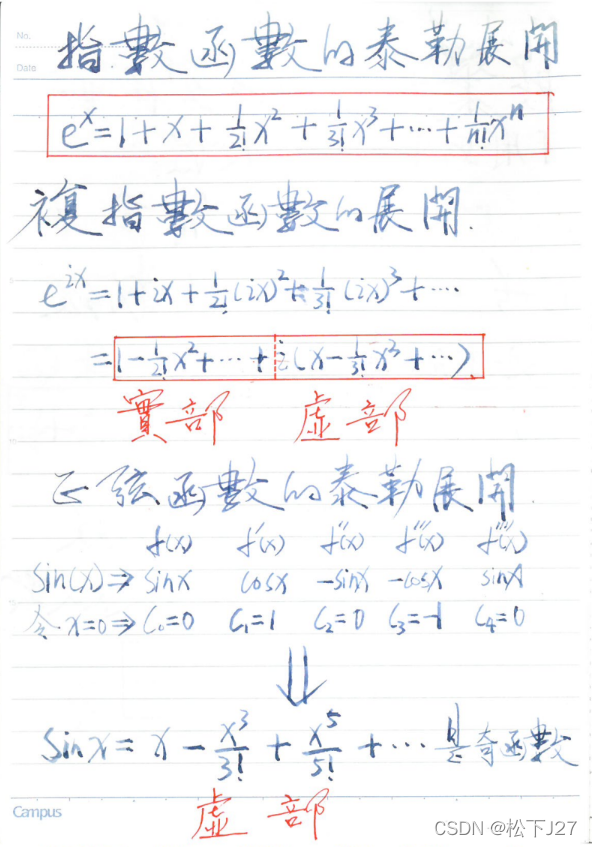 No.
Date
指數函數的泰勒展開
e^x = 1 + x + 1/2! x^2 + 1/3! x^3 + ... + 1/n! x^n
複指數函數的展開.
e^{ix} = 1 + ix + 1/2! (ix)^2 + 1/3! (ix)^3 + ...
= 1 - 1/2! x^2 + ... + i(x - 1/3! x^3 + ...)
實部 虛部
正弦函數的泰勒展開
f(x) f'(x) f''(x) f'''(x) f''''(x)
Sin(x) ⇒ sinx cosx -sinx -cosx sinx
令 x=0 ⇒ C₀=0 C₁=1 C₂=0 C₃=-1 C₄=0
⇓
Sinx = x - x^3/3! + x^5/5! + ... 是奇函數
Campus
虛部
CSDN @松下J27